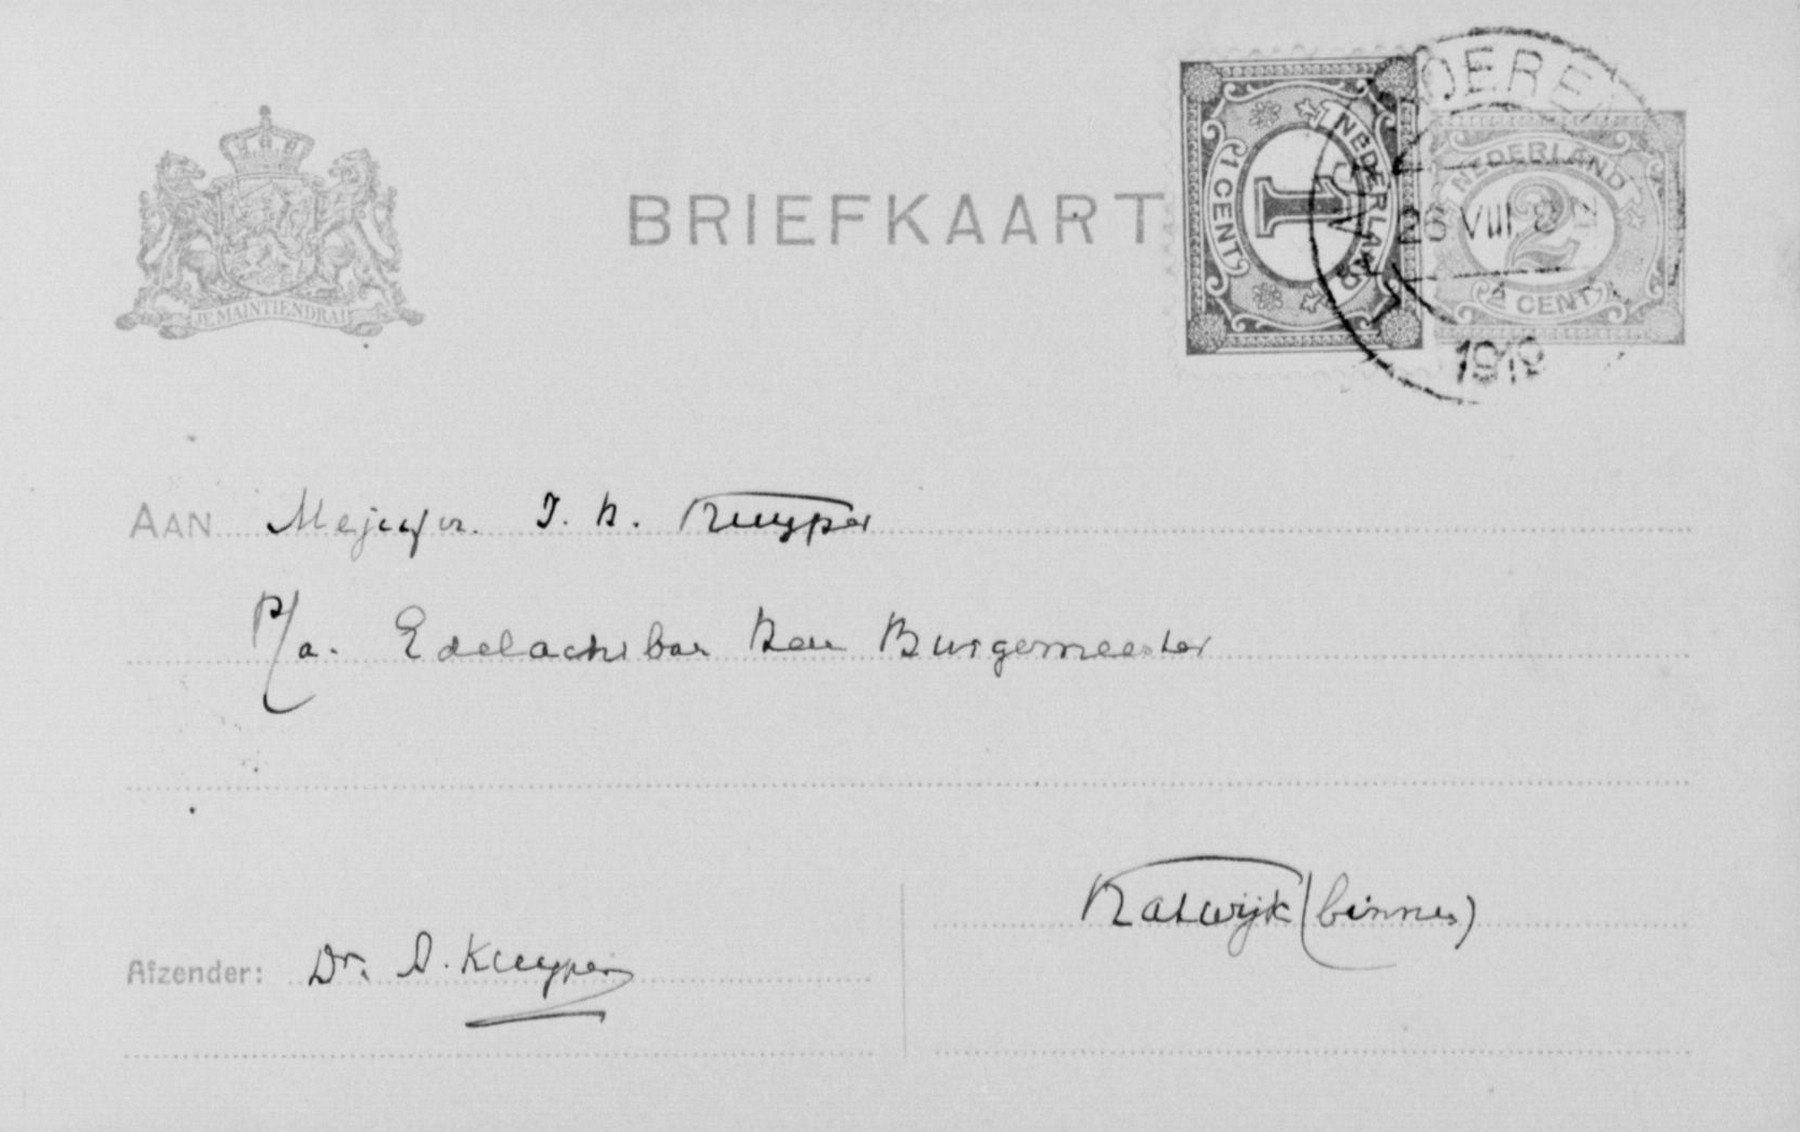 BRIEFKAART
JE MAINTIENDRAI
NEDERLAND
1
1 CENT
NEDERLAND
2
2 CENT
26 VIII
1919
AAN Mejufvr. J. H. Kuyper
P/a. Edelachtbar Heer Burgemeester
Katwijk (binnen)
Afzender: Dr. A. Kuyper